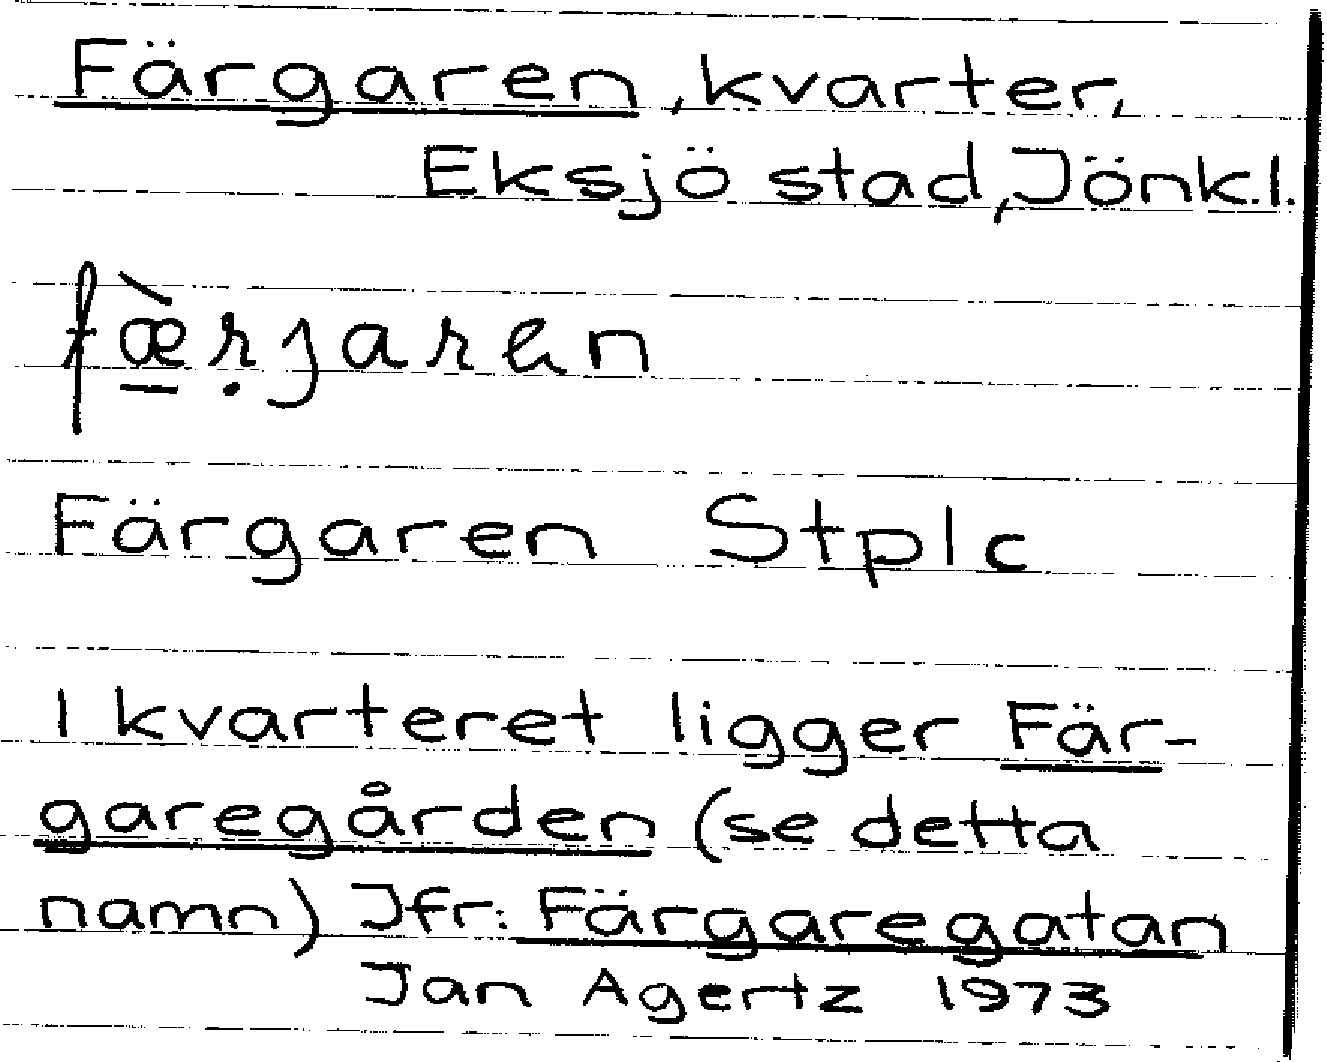 Färgaren, kvarter,
Eksjö stad, Jönk.l.
fæ̀rjaren
Färgaren Stplc
I kvarteret ligger Fär-
garegården (se detta
namn) Jfr: Färgaregatan
Jan Agertz 1973